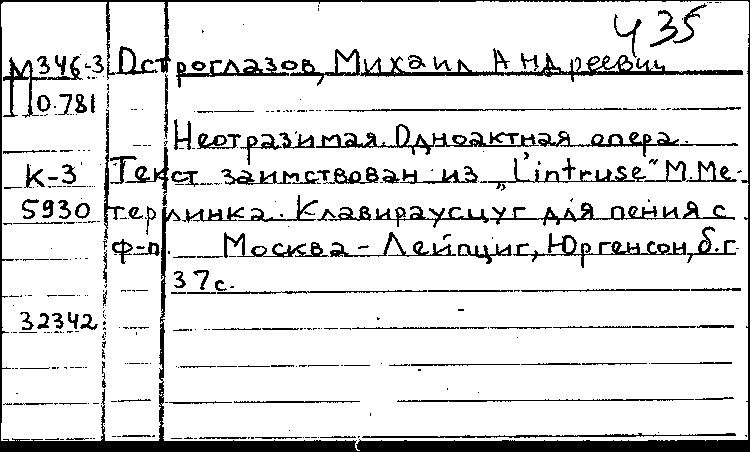 Ч 35
М 346-3 Остроглазов, Михаил Андреевич
П 0.781
Неотразимая. Одноактная опера.
К-3 Текст заимствован из „L'intruse" М. Ме-
5930 терлинка. Клавираусцуг для пения с
ф-п. Москва - Лейпциг, Юргенсон, б.г.
37 с.
32342